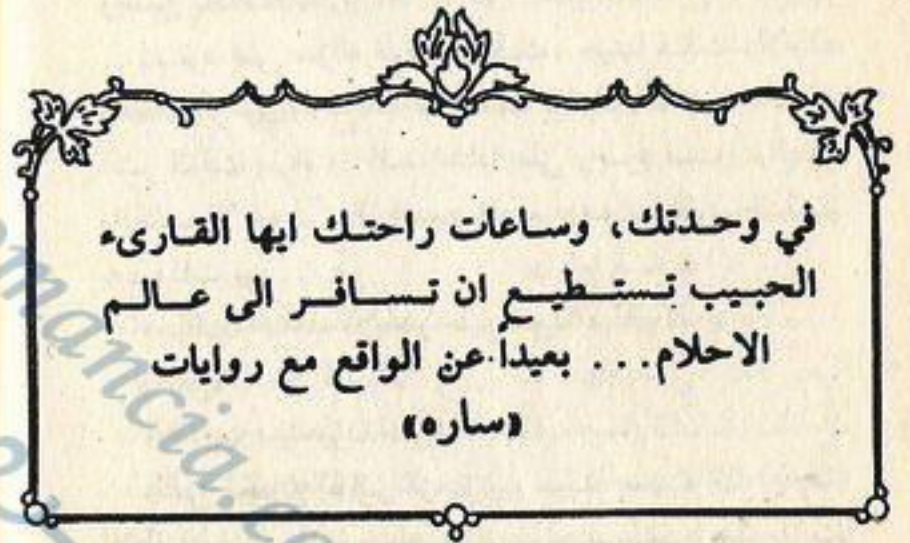 في وحدتك، وساعات راحتك ايها القارىء
الحبيب تستطيع ان تسافر الى عالم
الاحلام... بعيداً عن الواقع مع روايات
«ساره»